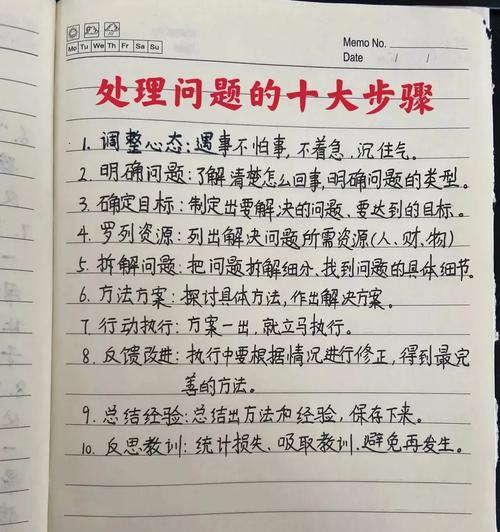 Mo Tu We Th Fr Sa Su
Memo No.
Date / /
处理问题的十大步骤
1. 调整心态:遇事不怕事,不着急,沉住气。
2. 明确问题:了解清楚怎么回事,明确问题的类型。
3. 确定目标:制定出要解决的问题、要达到的目标。
4. 罗列资源:列出解决问题所需资源(人、财、物)
5. 拆解问题:把问题拆解细分、找到问题的具体细节。
6. 方法方案:探讨具体方法,作出解决方案。
7. 行动执行:方案一出,就立马执行。
8. 反馈改进:执行中要根据情况进行修正,得到最完
善的方法。
9. 总结经验:总结出方法和经验,保存下来。
10. 反思教训:统计损失、吸取教训、避免再发生。